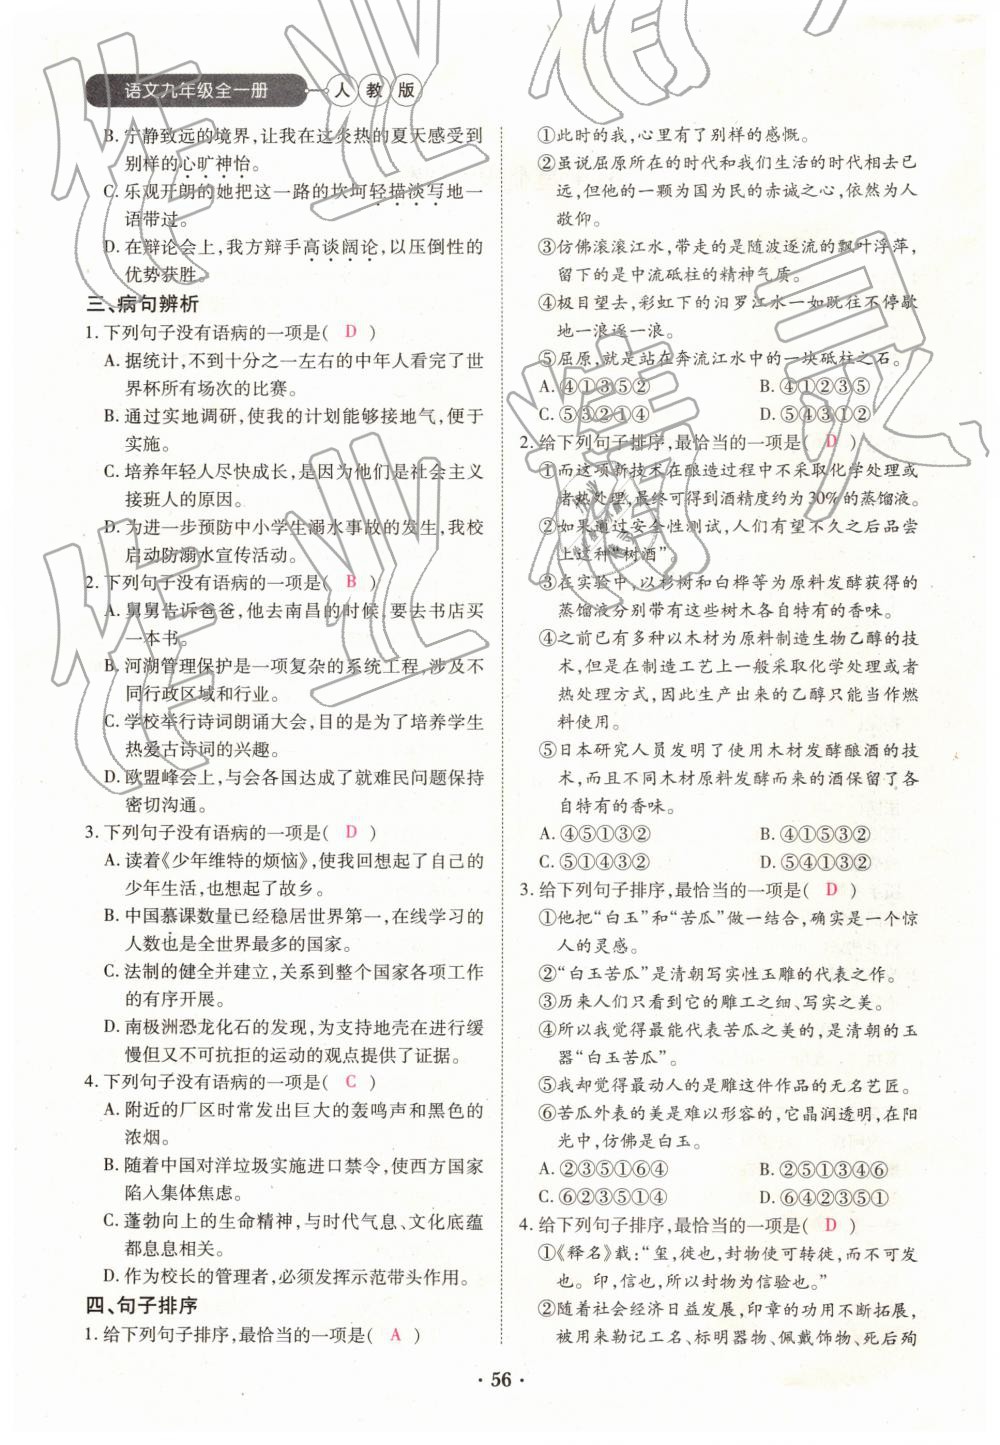 语文九年级全一册 人教版
B. 宁静致远的境界,让我在这炎热的夏天感受到
别样的心旷神怡。
C. 乐观开朗的她把这一路的坎坷轻描淡写地一
语带过。
D. 在辩论会上,我方辩手高谈阔论,以压倒性的
优势获胜。
三、病句辨析
1. 下列句子没有语病的一项是( D )
A. 据统计,不到十分之一左右的中年人看完了世
界杯所有场次的比赛。
B. 通过实地调研,使我的计划能够接地气,便于
实施。
C. 培养年轻人尽快成长,是因为他们是社会主义
接班人的原因。
D. 为进一步预防中小学生溺水事故的发生,我校
启动防溺水宣传活动。
2. 下列句子没有语病的一项是( B )
A. 舅舅告诉爸爸,他去南昌的时候,要去书店买
一本书。
B. 河湖管理保护是一项复杂的系统工程,涉及不
同行政区域和行业。
C. 学校举行诗词朗诵大会,目的是为了培养学生
热爱古诗词的兴趣。
D. 欧盟峰会上,与会各国达成了就难民问题保持
密切沟通。
3. 下列句子没有语病的一项是( D )
A. 读着《少年维特的烦恼》,使我回想起了自己的
少年生活,也想起了故乡。
B. 中国慕课数量已经稳居世界第一,在线学习的
人数也是全世界最多的国家。
C. 法制的健全并建立,关系到整个国家各项工作
的有序开展。
D. 南极洲恐龙化石的发现,为支持地壳在进行缓
慢但又不可抗拒的运动的观点提供了证据。
4. 下列句子没有语病的一项是( C )
A. 附近的厂区时常发出巨大的轰鸣声和黑色的
浓烟。
B. 随着中国对洋垃圾实施进口禁令,使西方国家
陷入集体焦虑。
C. 蓬勃向上的生命精神,与时代气息、文化底蕴
都息息相关。
D. 作为校长的管理者,必须发挥示范带头作用。
四、句子排序
1. 给下列句子排序,最恰当的一项是( A )
①此时的我,心里有了别样的感慨。
②虽说屈原所在的时代和我们生活的时代相去已
远,但是他的一颗为国为民的赤诚之心,依然为人
敬仰。
③仿佛滚滚江水,带走的是随波逐流的飘叶浮萍,
留下的是中流砥柱的精神气质。
④极目望去,彩虹下的汨罗江水一如既往不停歇
地一浪逐一浪。
⑤屈原,就是站在奔流江水中的一块砥柱之石。
A. ④①③⑤② B. ④①②③⑤
C. ⑤③②①④ D. ⑤④③①②
2. 给下列句子排序,最恰当的一项是( D )
①而这项新技术在酿造过程中不采取化学处理或
者热处理,最终可得到酒精度约为30%的蒸馏液。
②如果通过安全性测试,人们有望不久之后品尝
上这种“树酒”。
③在实验中,以杉树和白桦等为原料发酵获得的
蒸馏液分别带有这些树木各自特有的香味。
④之前已有多种以木材为原料制造生物乙醇的技
术,但是在制造工艺上一般采取化学处理或者
热处理方式,因此生产出来的乙醇只能当作燃
料使用。
⑤日本研究人员发明了使用木材发酵酿酒的技
术,而且不同木材原料发酵而来的酒保留了各
自特有的香味。
A. ④⑤①③② B. ④①⑤③②
C. ⑤①④③② D. ⑤④①③②
3. 给下列句子排序,最恰当的一项是( D )
①他把“白玉”和“苦瓜”做一结合,确实是一个惊
人的灵感。
②“白玉苦瓜”是清朝写实性玉雕的代表之作。
③历来人们只看到它的雕工之细、写实之美。
④所以我觉得最能代表苦瓜之美的,是清朝的玉
器“白玉苦瓜”。
⑤我却觉得最动人的是雕这件作品的无名艺匠。
⑥苦瓜外表的美是难以形容的,它晶润透明,在阳
光中,仿佛是白玉。
A. ②③⑤①⑥④ B. ②⑤①③④⑥
C. ⑥②③⑤①④ D. ⑥④②③⑤①
4. 给下列句子排序,最恰当的一项是( D )
①《释名》载:“玺,徙也,封物使可转徙,而不可发
也。印,信也,所以封物为信验也。”
②随着社会经济日益发展,印章的功用不断拓展,
被用来勒记工名、标明器物、佩戴饰物、死后殉
· 56 ·
作业精灵
作业精灵